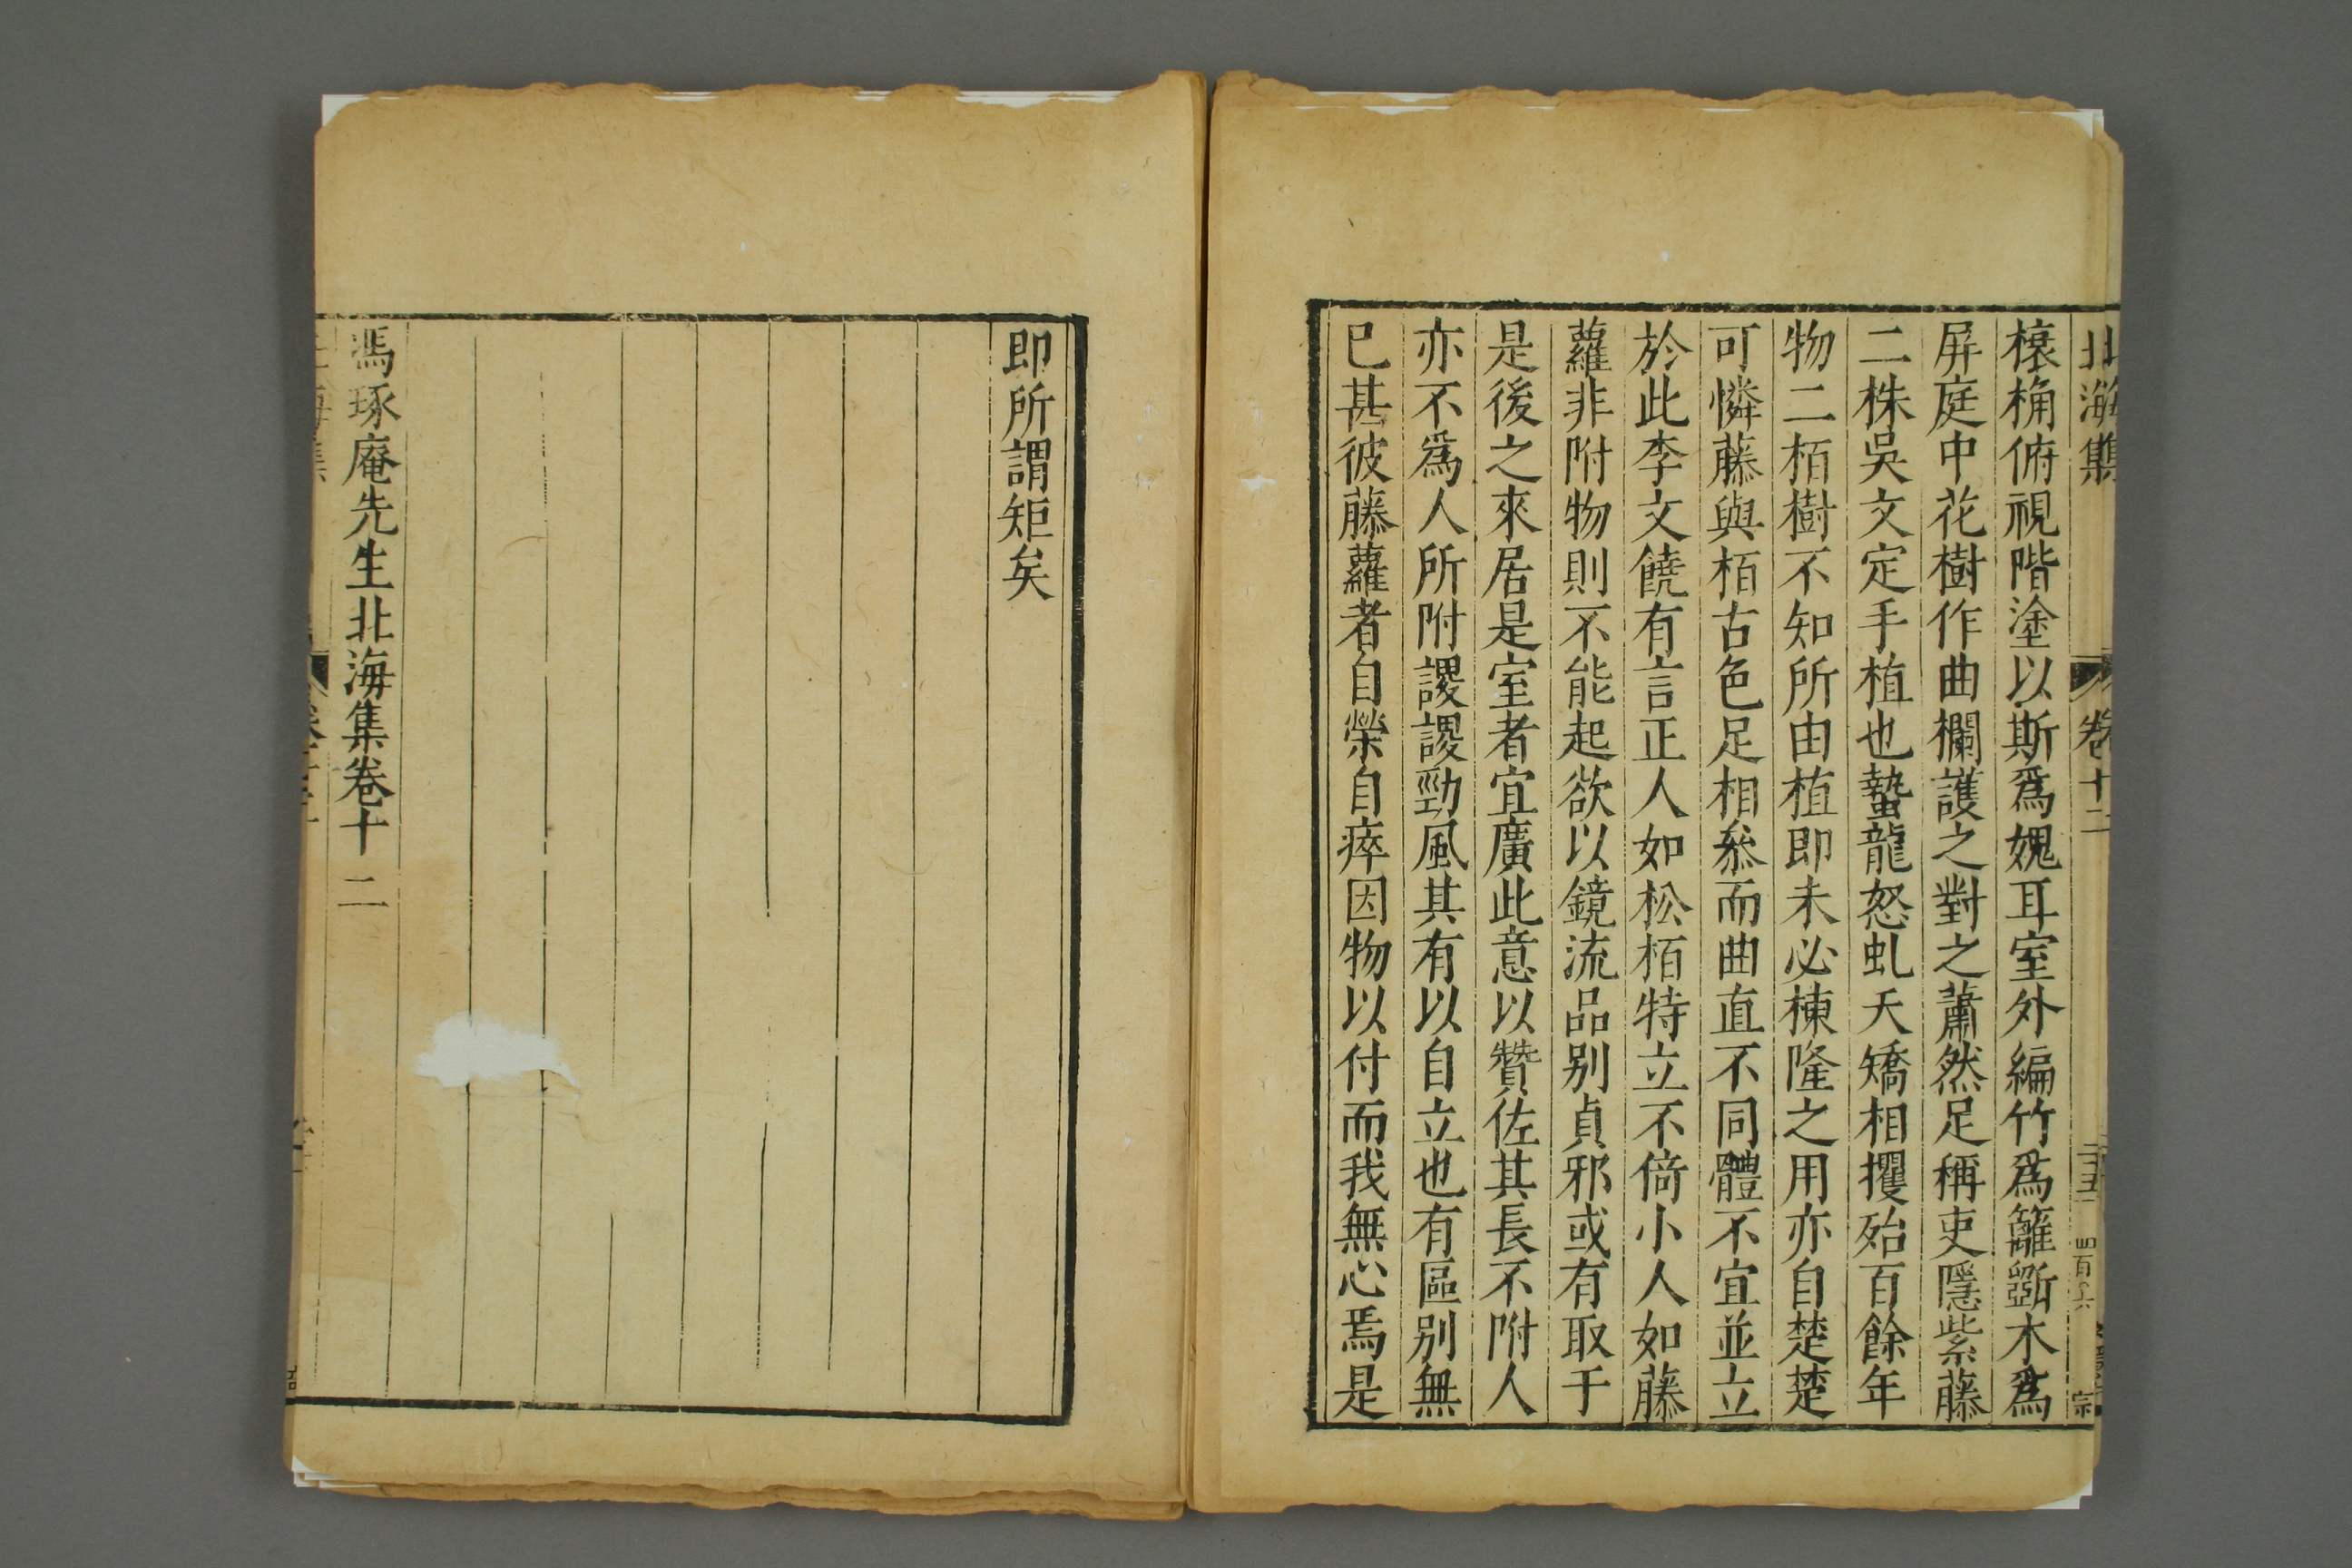 北海集 卷十二
榱桷俯視階塗以斯爲媿耳室外編竹爲籬斵木爲
屏庭中花樹作曲欄護之對之蕭然足稱吏隱紫藤
二株吳文定手植也蟄龍怒虬夭矯相攫殆百餘年
物二栢樹不知所由植即未必棟隆之用亦自楚楚
可憐藤與栢古色足相叅而曲直不同體不宜並立
於此李文饒有言正人如松栢特立不倚小人如藤
蘿非附物則不能起欲以鏡流品别貞邪或有取于
是後之來居是室者宜廣此意以贊佐其長不附人
亦不爲人所附謖謖勁風其有以自立也有區别無
已甚彼藤蘿者自榮自瘁因物以付而我無心焉是
即所謂矩矣
馮琢庵先生北海集卷十二